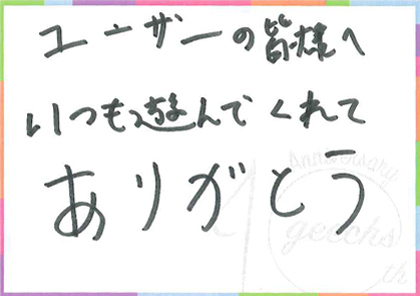 ユーザーの皆様へ
いつも遊んでくれて
ありがとう
Anniversary
geechs
th